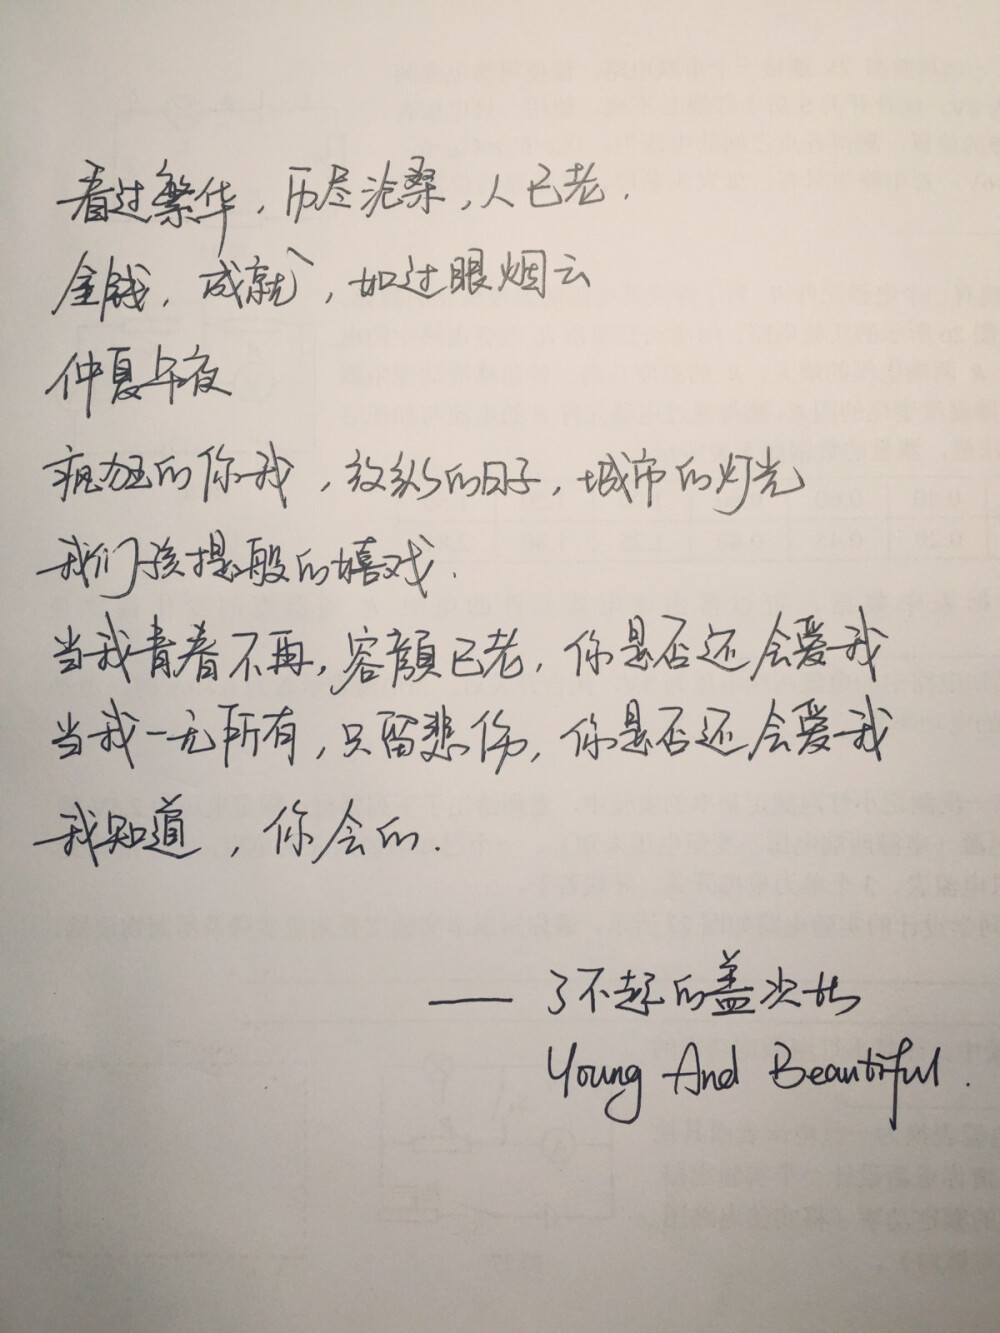 看过繁华，历尽沧桑，人已老．
金钱，成就，如过眼烟云
仲夏午夜
疯狂的你我，放纵的日子，城市的灯光
我们孩提般的嬉戏．
当我青春不再，容颜已老，你是否还会爱我
当我一无所有，只留悲伤，你是否还会爱我
我知道，你会的．
—— 了不起的盖茨比
Young And Beautiful .